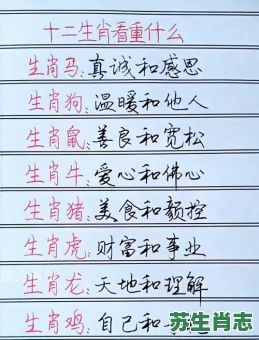 十二生肖看重什么
生肖马:真诚和感恩
生肖狗:温暖和他人
生肖鼠:善良和宽松
生肖牛:爱心和佛心
生肖猪:美食和颜控
生肖虎:财富和事业
生肖龙:天地和理解
生肖鸡:自己和
苏生肖志